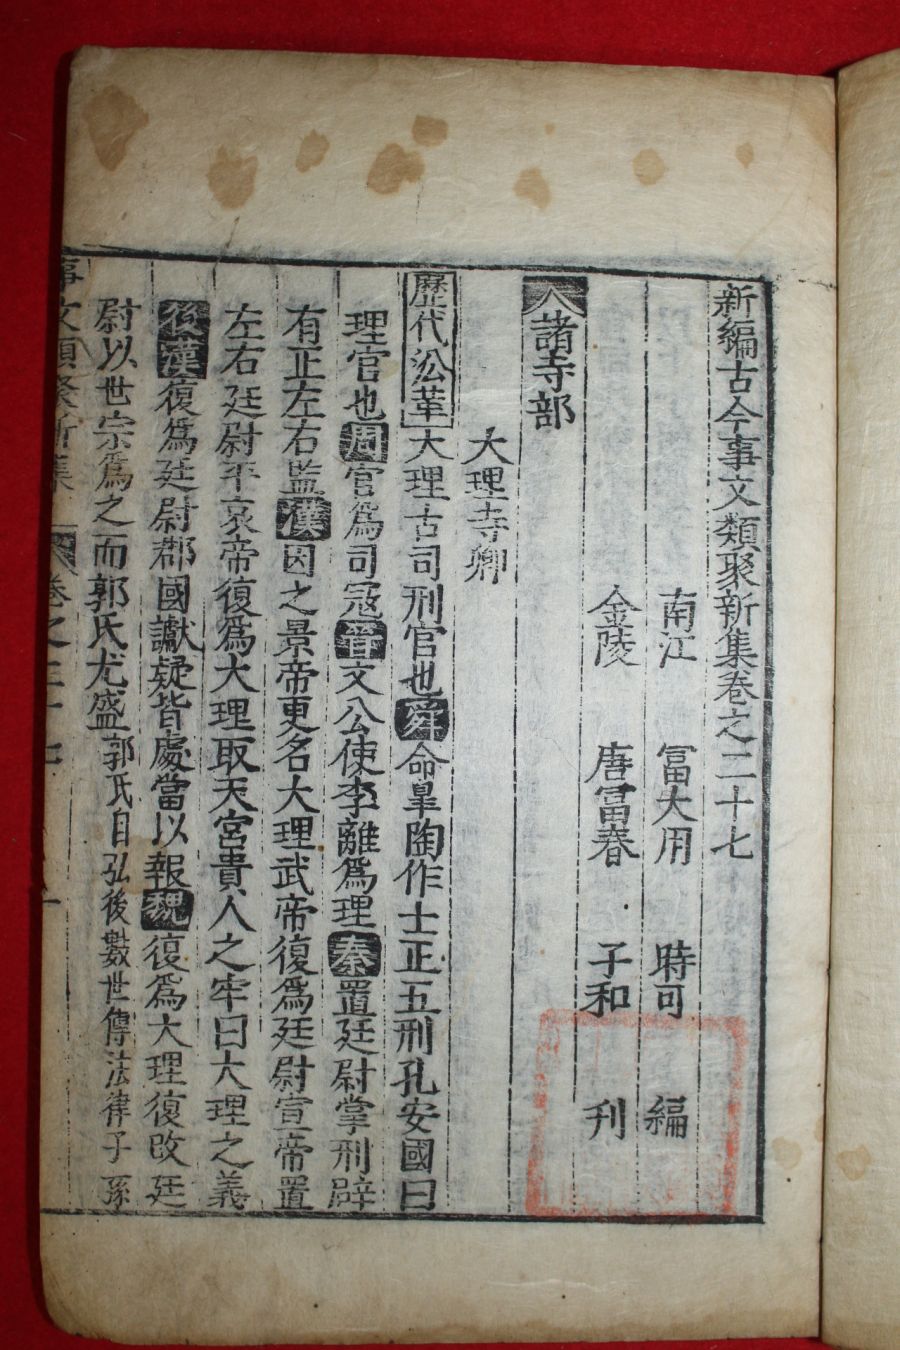 新編古今事文類聚新集卷之二十七
南江 冨大用 時可 編
金陵 唐冨春 子和 刊
諸寺部
大理寺卿
歷代㳂革大理古司刑官也舜命皐陶作士正五刑孔安國曰
理官也周官爲司冦晉文公使李離爲理秦置廷尉掌刑辟
有正左右監漢因之景帝更名大理武帝復爲廷尉宣帝置
左右廷尉平哀帝復爲大理取天官貴人之牢曰大理之義
後漢復爲廷尉郡國讞疑皆處當以報魏復爲大理復改廷
尉以世宗爲之而郭氏尤盛郭氏自弘後數世傳法律子孫
事文類聚新集 卷之二十七